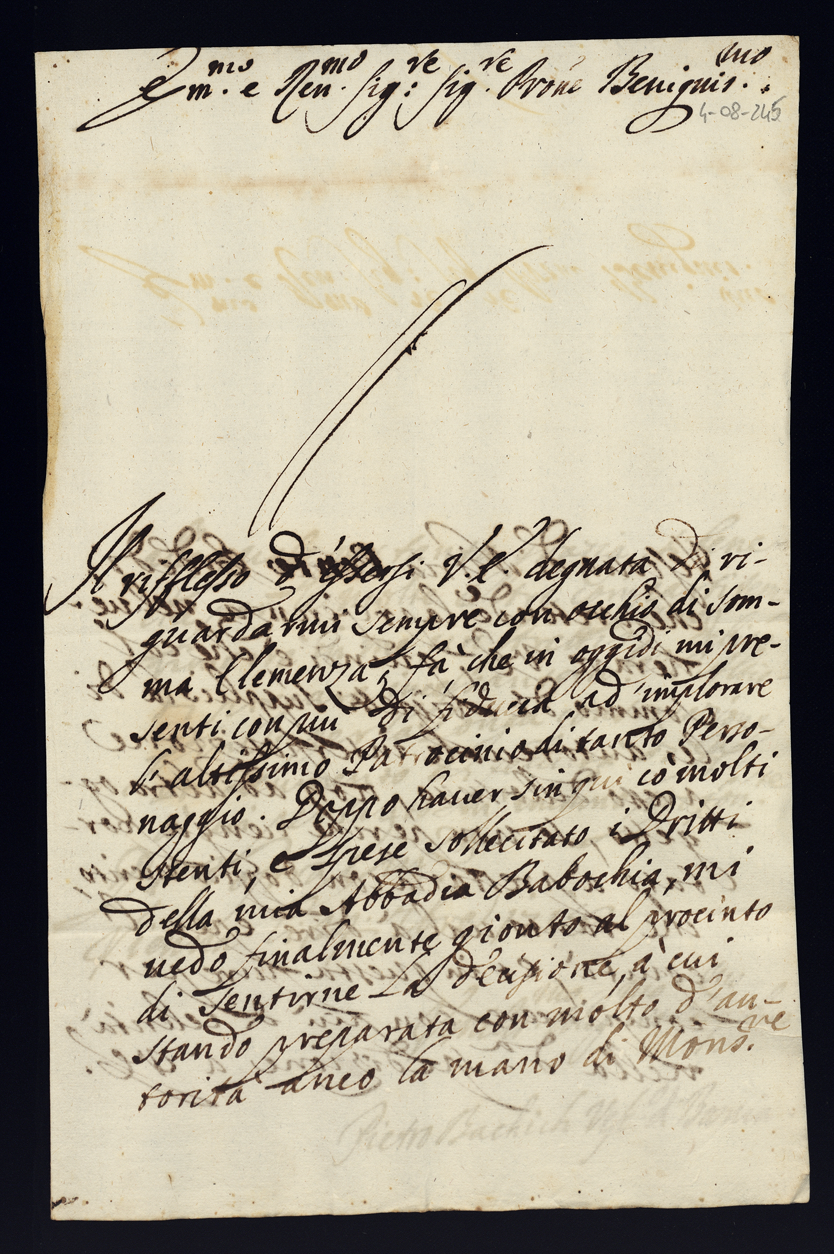 Em.mo e Rev.mo Sig:re Sig.re Prone Benignis.mo
4-08-245
Il rifflesso d'essersi V.E. degnata di ri-
guardarmi sempre con occhio di som-
ma Clemenza, fà che in oggidi mi pre-
senti con più di fiducia ad implorare
l'altissimo Patrocinio di tanto Perso-
naggio. Doppo haver sin qui cò molti
stenti, e spese sollecitato i Dritti
della mia Abbadia Babochia, mi
vedo finalmente gionto al procinto
di sentirne La decisione, à cui
stando preparata con molto d'au-
torità anco la mano di Mons.re